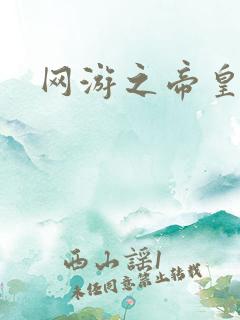 网游之帝皇
西山謡1
未经同意禁止转载